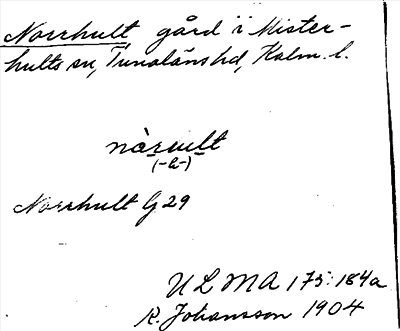 Norrhult gård i Mister-
hults sn, Tunaläns hd, Kalm. l.
nàrult
(-ả-)
Norrhult G 29
ULMA 175:184a
R. Johansson 1904